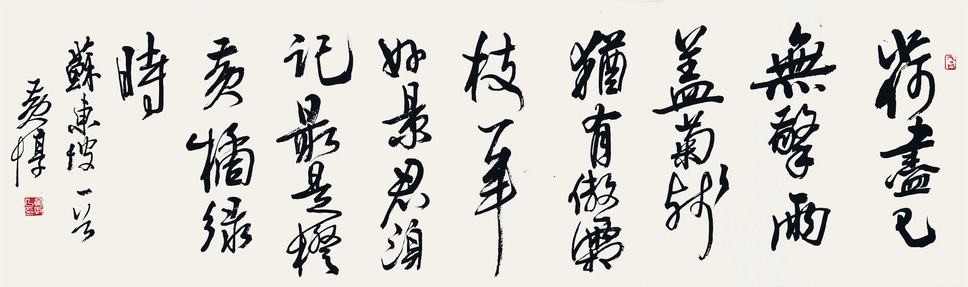 荷盡已
無擎雨
蓋菊殘
猶有傲霜
枝一年
好景君須
記最是橙
黃橘綠
時
蘇東坡一首
黃惇